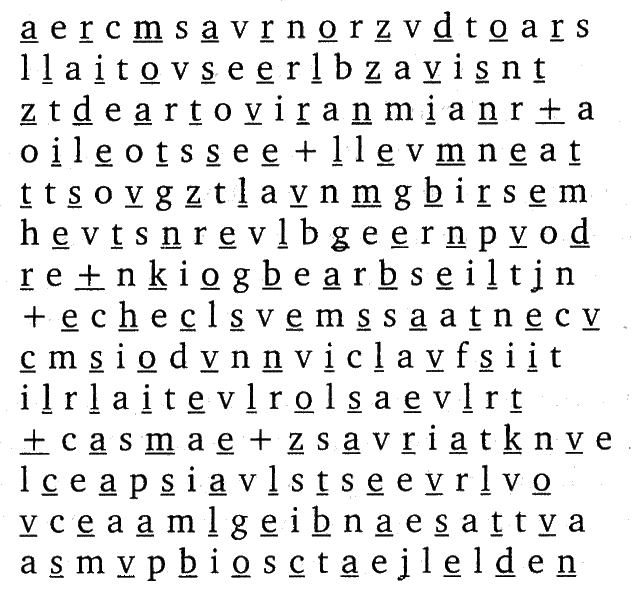 a e r c m s a v r n o r z v d t o a r s
l l a i t o v s e e r l b z a v i s n t
z t d e a r t o v i r a n m i a n r + a
o i l e o t s s e e + l l e v m n e a t
t t s o v g z t l a v n m g b i r s e m
h e v t s n r e v l b g e e r n p v o d
r e + n k i o g b e a r b s e i l t j n
+ e c h e c l s v e m s s a a t n e c v
c m s i o d v n n v i c l a v f s i i t
i l r l a i t e v l r o l s a e v l r t
+ c a s m a e + z s a v r i a t k n v e
l c e a p s i a v l s t s e e v r l v o
v c e a a m l g e i b n a e s a t t v a
a s m v p b i o s c t a e j l e l d e n